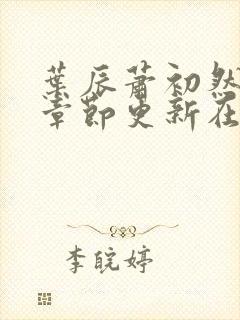 葉辰蕭初然
章節更新在
李皖婷